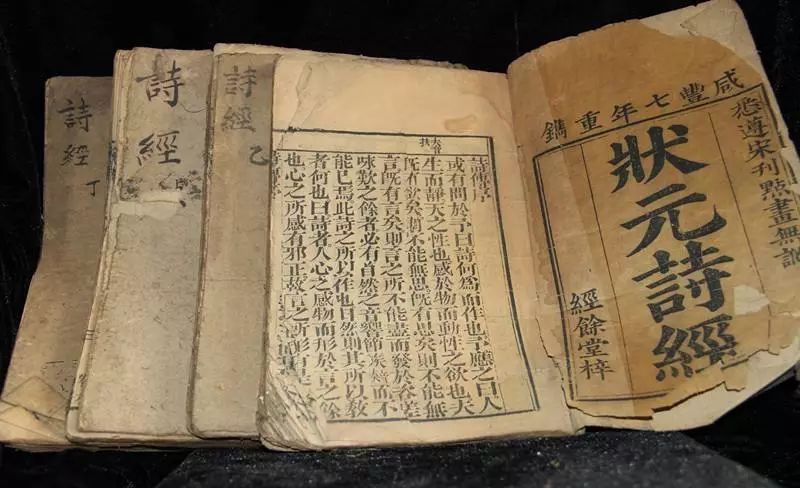 咸豐七年重鐫
悉遵宋刊點畫無訛
狀元詩經
經餘堂梓
詩傳序
或有問於予曰詩何爲而作也予應之曰人
生而靜天之性也感於物而動性之欲也夫
既有欲矣則不能無思既有思矣則不能無
言既有言矣則言之所不能盡而發於咨嗟
咏歎之餘者必有自然之音響節族而不
能已焉此詩之所以作也曰然則其所以教
者何也曰詩者人心之感物而形於言之餘
也心之所感有邪正故言之所形有是非
詩經 乙
詩經
詩經 丁